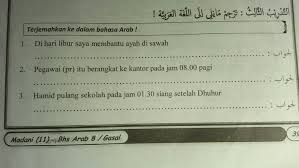 التَّدْرِيْبُ الثَّالِثُ : تَرْجِمْ مَايَلِى اِلَى اللُّغَةِ العَرَبِيَّةِ !
Terjemahkan ke dalam bahasa Arab !
1. Di hari libur saya membantu ayah di sawah
الجواب :
2. Pegawai (pr) itu berangkat ke kantor pada jam 08.00 pagi
الجواب :
3. Hamid pulang sekolah pada jam 01.30 siang setelah Dhuhur
الجواب :
Madani (11) Bhs Arab B / Gasal